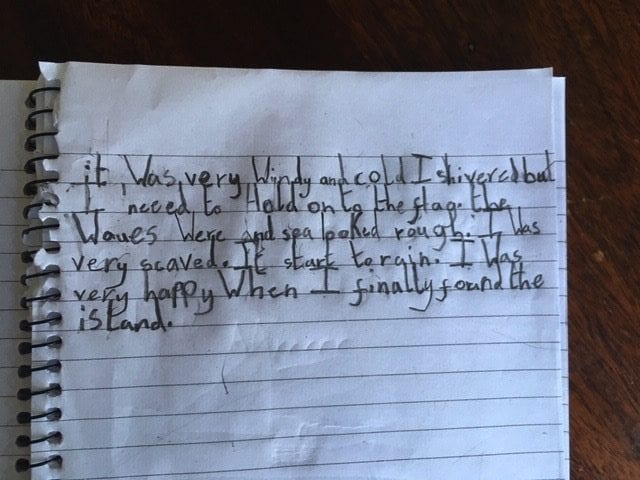 it Was very Windy and cold I shivered but
I need to Hold on to the flag. the
Waves Were and sea looked rough. I Was
very scared. It start to rain. I Was
very happy When I finally found the
island.